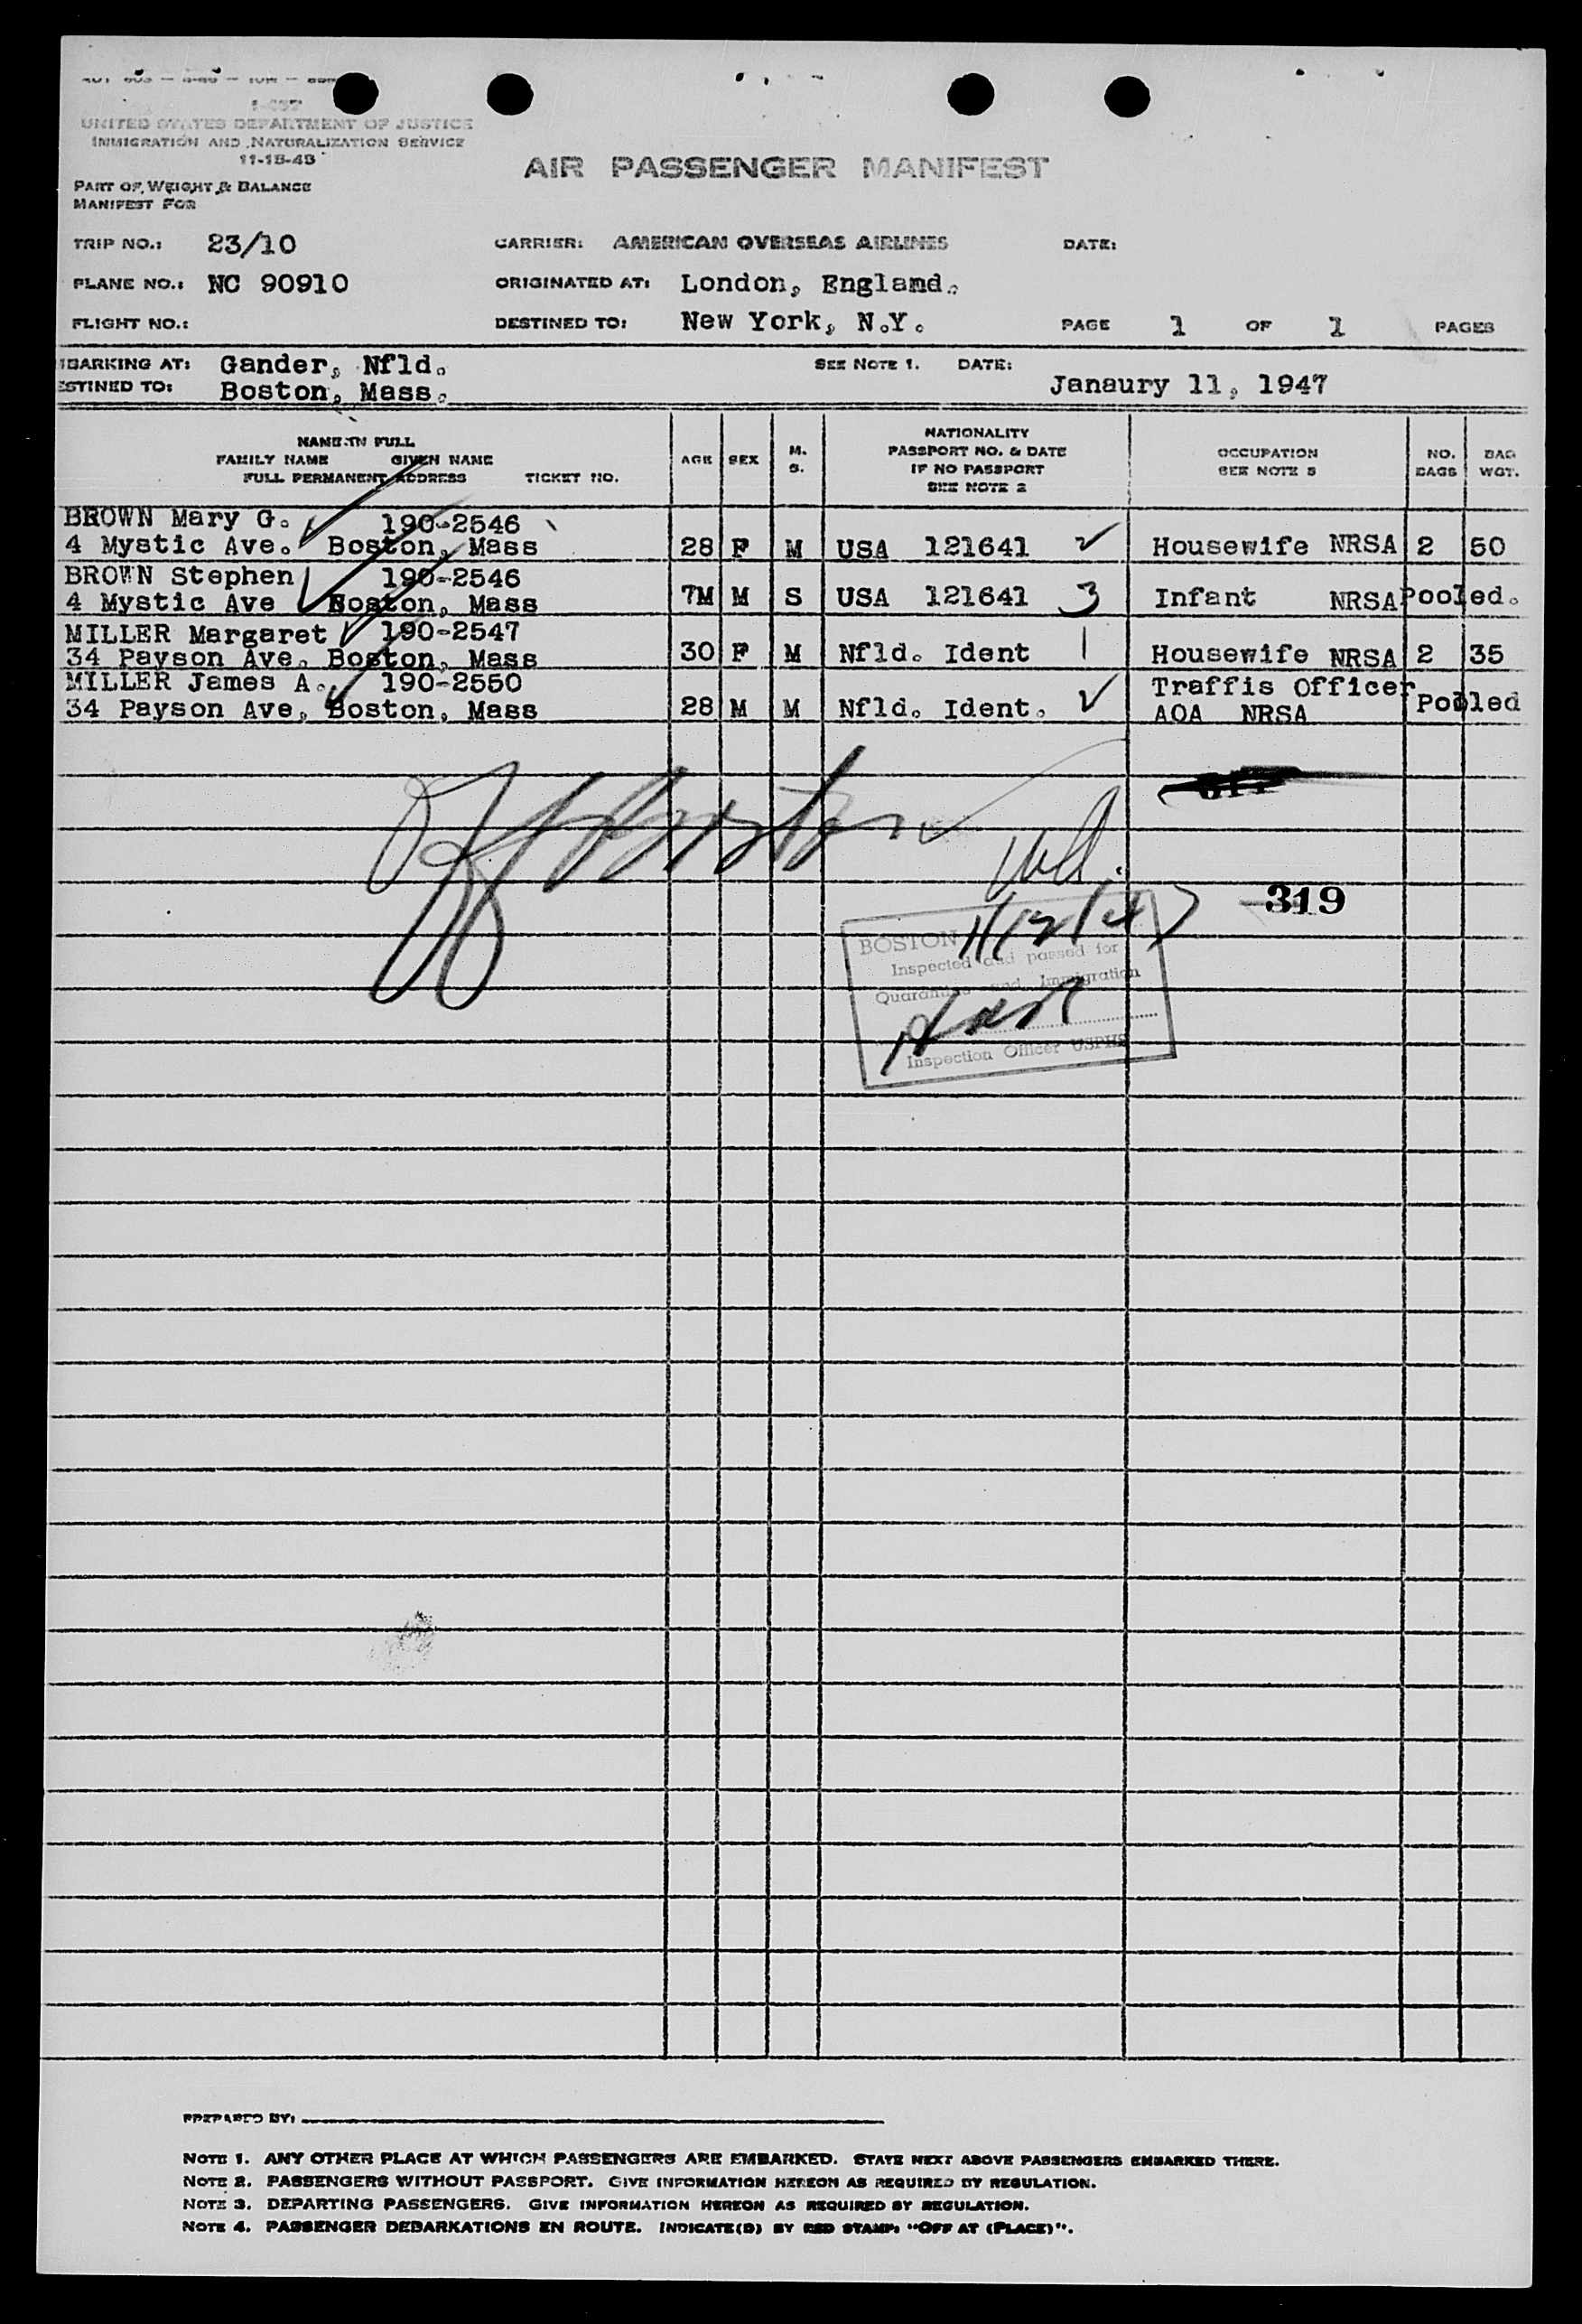 UNITED STATES DEPARTMENT OF JUSTICE
IMMIGRATION AND NATURALIZATION SERVICE
11-15-43
AIR PASSENGER MANIFEST
PART OF WEIGHT & BALANCE
MANIFEST FOR
TRIP NO.: 23/10 CARRIER: AMERICAN OVERSEAS AIRLINES DATE:
PLANE NO.: NC 90910 ORIGINATED AT: London, England.
FLIGHT NO.: DESTINED TO: New York, N.Y. PAGE 1 OF 1 PAGES
MBARKING AT: Gander, Nfld. SEE NOTE 1. DATE:
ESTINED TO: Boston, Mass. Janaury 11, 1947
NAME IN FULL
FAMILY NAME GIVEN NAME
FULL PERMANENT ADDRESS TICKET NO.
AGE
SEX
M.
S.
NATIONALITY
PASSPORT NO. & DATE
IF NO PASSPORT
SEE NOTE 2
OCCUPATION
SEE NOTE 3
NO.
BAGS
BAG
WGT.
BROWN Mary G. 190-2546
4 Mystic Ave. Boston, Mass 28 F M USA 121641 Housewife NRSA 2 50
BROWN Stephen 190-2546
4 Mystic Ave Boston, Mass 7M M S USA 121641 3 Infant NRSA Pooled.
MILLER Margaret 190-2547
34 Payson Ave. Boston, Mass 30 F M Nfld. Ident 1 Housewife NRSA 2 35
MILLER James A. 190-2550 Traffis Officer
34 Payson Ave, Boston, Mass 28 M M Nfld. Ident. AOA NRSA Pooled
319
BOSTON 1/12/47
Inspected and passed for
Quarantine and Immigration
Inspection Officer USPHS
PREPARED BY:
NOTE 1. ANY OTHER PLACE AT WHICH PASSENGERS ARE EMBARKED. STATE NEXT ABOVE PASSENGERS EMBARKED THERE.
NOTE 2. PASSENGERS WITHOUT PASSPORT. GIVE INFORMATION HEREON AS REQUIRED BY REGULATION.
NOTE 3. DEPARTING PASSENGERS. GIVE INFORMATION HEREON AS REQUIRED BY REGULATION.
NOTE 4. PASSENGER DEBARKATIONS EN ROUTE. INDICATE(D) BY RED STAMP: "OFF AT (PLACE)".